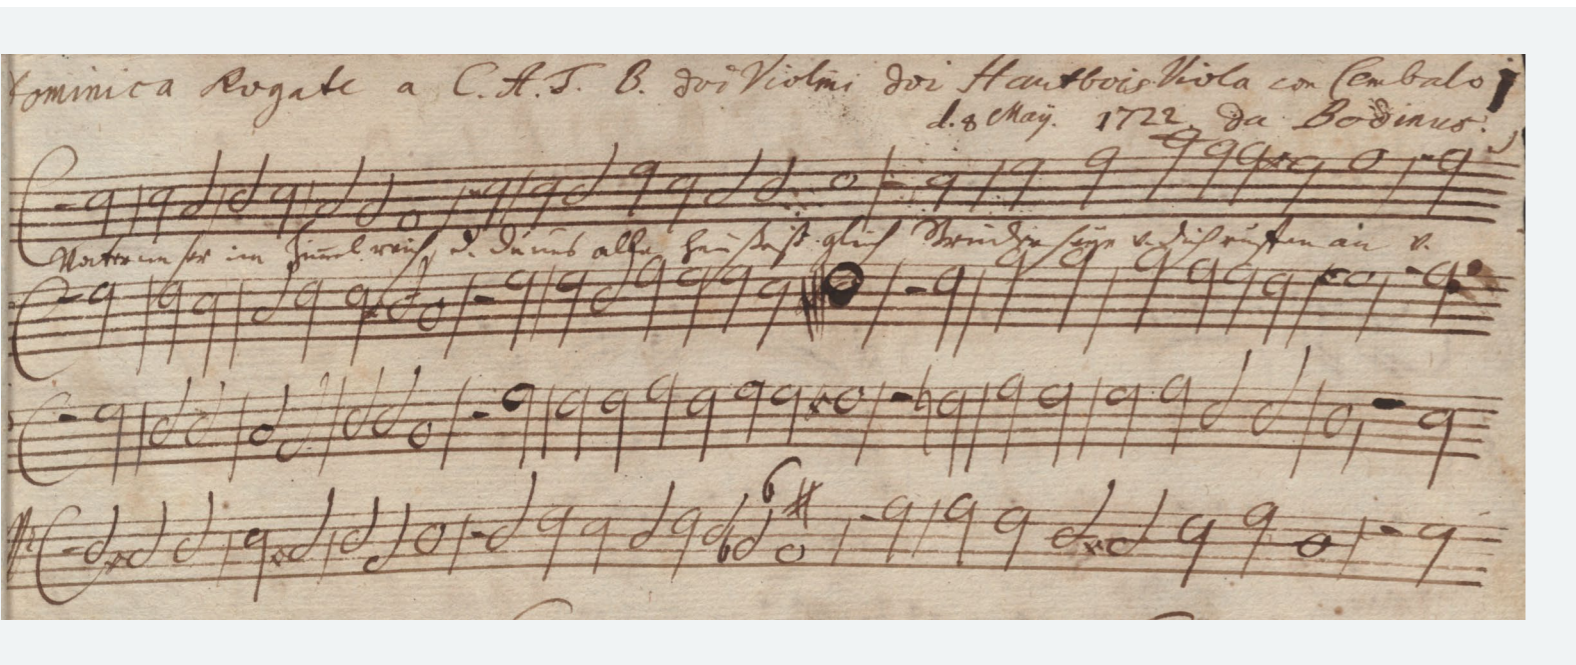 Dominica Rogate a C. A. T. B. doi Violini doi Hautbois Viola con Cembalo
d. 8 Maÿ. 1722. da Bodinus.
Vater unser im Himmelreich, d. du uns alle heissest glich Brüder seyn v. dich ruffen an v.
6